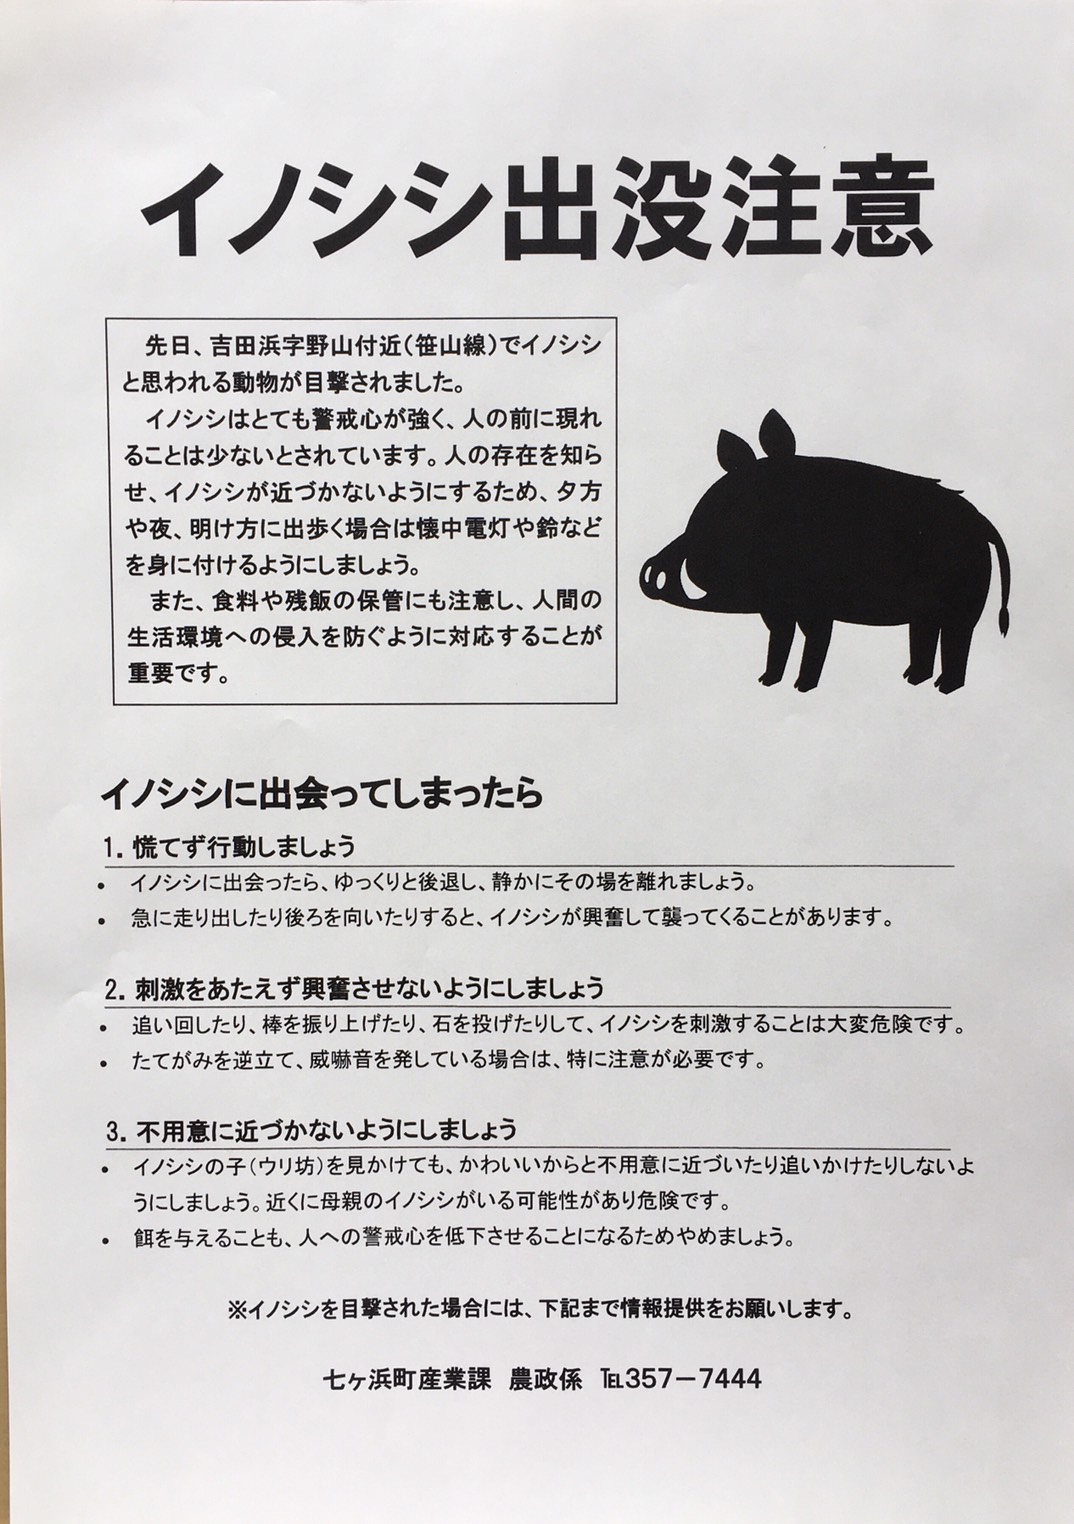 イノシシ出没注意
先日、吉田浜字野山付近(笹山線)でイノシシ
と思われる動物が目撃されました。
イノシシはとても警戒心が強く、人の前に現れ
ることは少ないとされています。人の存在を知ら
せ、イノシシが近づかないようにするため、夕方
や夜、明け方に出歩く場合は懐中電灯や鈴など
を身に付けるようにしましょう。
また、食料や残飯の保管にも注意し、人間の
生活環境への侵入を防ぐように対応することが
重要です。
イノシシに出会ってしまったら
1. 慌てず行動しましょう
• イノシシに出会ったら、ゆっくりと後退し、静かにその場を離れましょう。
• 急に走り出したり後ろを向いたりすると、イノシシが興奮して襲ってくることがあります。
2. 刺激をあたえず興奮させないようにしましょう
• 追い回したり、棒を振り上げたり、石を投げたりして、イノシシを刺激することは大変危険です。
• たてがみを逆立て、威嚇音を発している場合は、特に注意が必要です。
3. 不用意に近づかないようにしましょう
• イノシシの子(ウリ坊)を見かけても、かわいいからと不用意に近づいたり追いかけたりしないよ
うにしましょう。近くに母親のイノシシがいる可能性があり危険です。
• 餌を与えることも、人への警戒心を低下させることになるためやめましょう。
※イノシシを目撃された場合には、下記まで情報提供をお願いします。
七ヶ浜町産業課 農政係 ℡357-7444